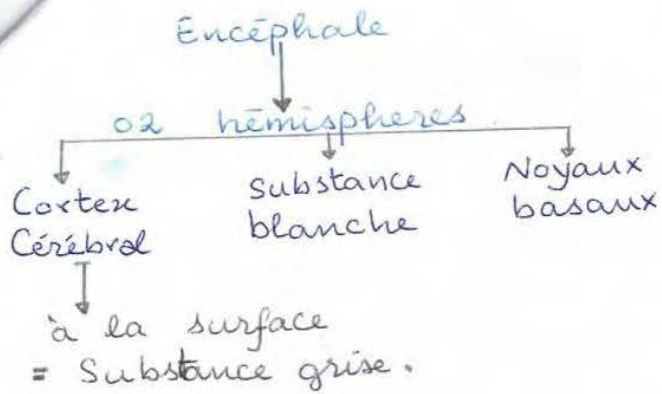 Encéphale
02 hémispheres
Cortex
Cérébral
Substance
blanche
Noyaux
basaux
à la surface
= Substance grise.